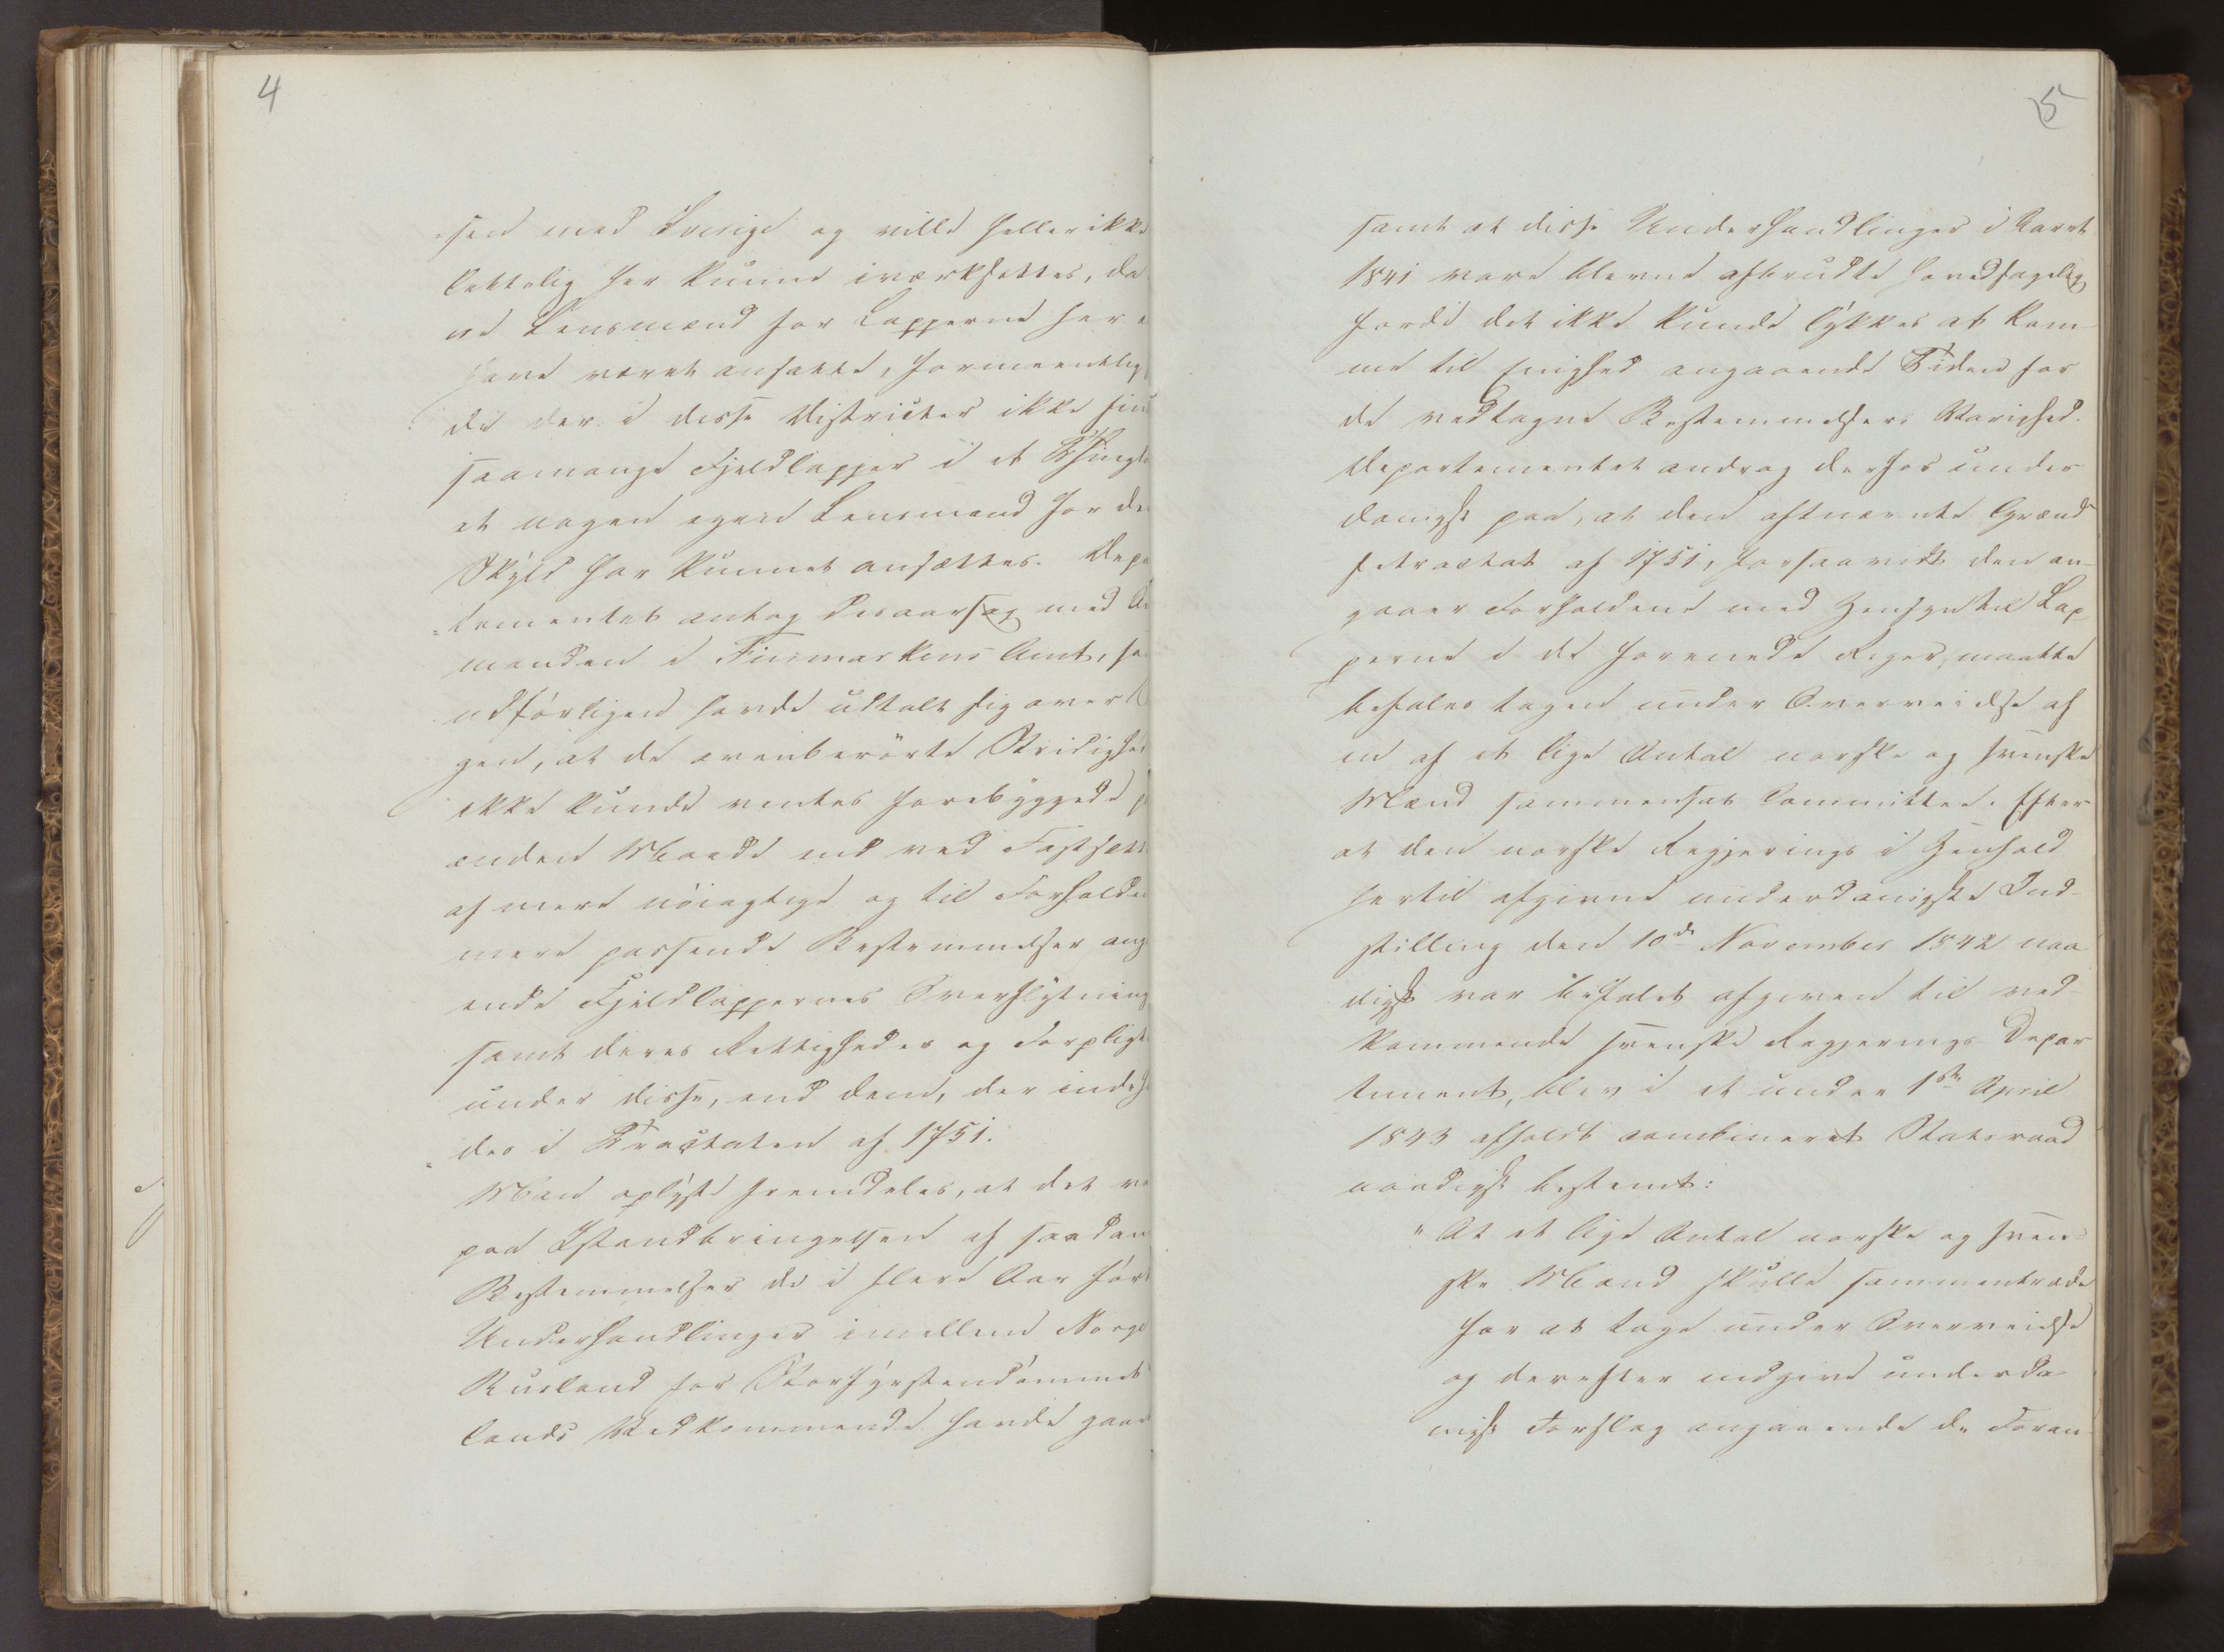 4
sen med Sverige og vilde heller ikke
lettelig her kunne iværksættes, da
ne Lensmænd for Lapperne her e
have været ansatte, formeentlig
di der i disse Districter ikke fin
saamange Fjeldlapper i et Thingl
at nogen egen Lensmand for de
Skyld har kunnet ansættes. Depa
-tementet antog desaarsag med A
manden i Finmarkens Amt, so
udförligen havde udtalt sig over
gen, at de ovenberörte Stridighe
ikke kunde ventes forebyggede p
anden Maade end ved Fastsætt
af mere nöiagtige og til Forholde
mere passende Bestemmelser ang
ende Fjeldlappernes Overflytning
samt deres Rettigheder og Forpligt
under disse, end dem, der indeh
des i Tractaten af 1751.
Man oplyste fremdeles, at det ve
paa Istandbringelsen af saadan
Bestemmelser de i flere Aar för
Underhandlinger imellem Norge
Rusland for Storfyrstendömmet
lands Vedkommende havde gaa
5
samt at disse Underhandlinger i Aaret
1841 vare blevne afbrudte hovedsagelig
fordi det ikke kunde lykkes at kom-
me til Enighed angaaende Tiden for
de vedtagne Bestemmelsers Varighed.
Departementet androg derhos under
danigst paa, at den aftnævnte Grænd
setractat af 1751, forsaavidt den an-
gaaer Forholdene med Hensyn til Lap
perne i de forenede Riger, maatte
befales tagen under Overveielse af
en af et lige Antal norske og svenske
Mænd sammensat Committee. Efter
at den norske Regjerings i Henhold
hertil afgivne underdanigste Ind-
stilling den 10de November 1842 naa
digst var befalet afgiven til ved-
kommende svenske Regjerings-Depar
tement, blev i et under 1ste April
1843 afholdt combineret Statsraad
naadigst bestemt:
"At et lige Antal norske og sven-
ske Mænd skulle sammentræde
for at tage under Overveielse
og derefter indgive underda-
nigst Forslag angaaende de Foran